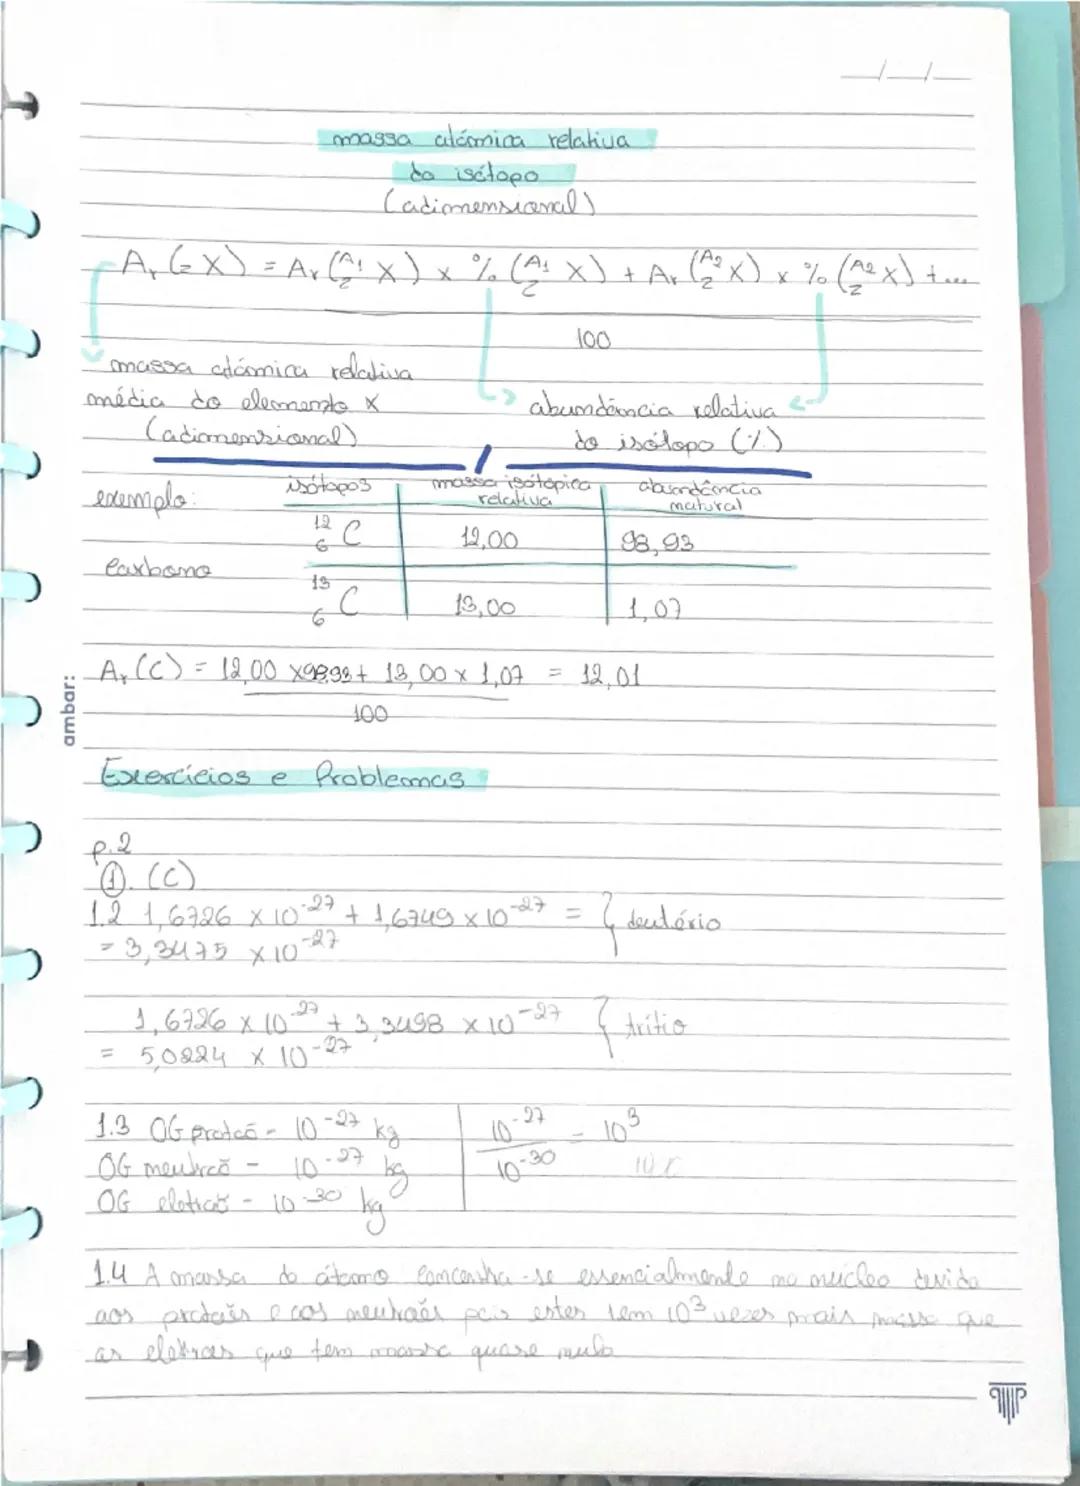 __/__/__
massa atómica relativa
do isótopo
(adimensional)
Ar (zX) = Ar (A1 z X) x % (A1 z X) + Ar (A2 z X) x % (A2 z X) + ...
100
massa atómica relativa
média do elemento X
(adimensional)
abundância relativa
do isótopo (%)
exemplo:
isótopos
massa isótopica
relativa
abundância
natural
12 6 C
12,00
98,93
Carbono
13 6 C
13,00
1,07
Ar (C) = 12,00 x 98,93 + 13,00 x 1,07 = 12,01
100
ambar:
Exercícios e Problemas
p.2
①. (C)
1.2 1,6726 x 10^-27 + 1,6749 x 10^-27 = { deutério
= 3,3475 x 10^-27
1,6726 x 10^-27 + 3,3498 x 10^-27 { trítio
= 5,0224 x 10^-27
1.3 OG protão - 10^-27 kg
10^-27
= 10^3
10^-30
OG neutrão - 10^-27 kg
OG eletrão - 10^-30 kg
1.4 A massa do átomo concentra-se essencialmente no núcleo devido
aos protões e aos neutrões pois estes tem 10^3 vezes mais massa que
os eletroes que tem massa quase nula